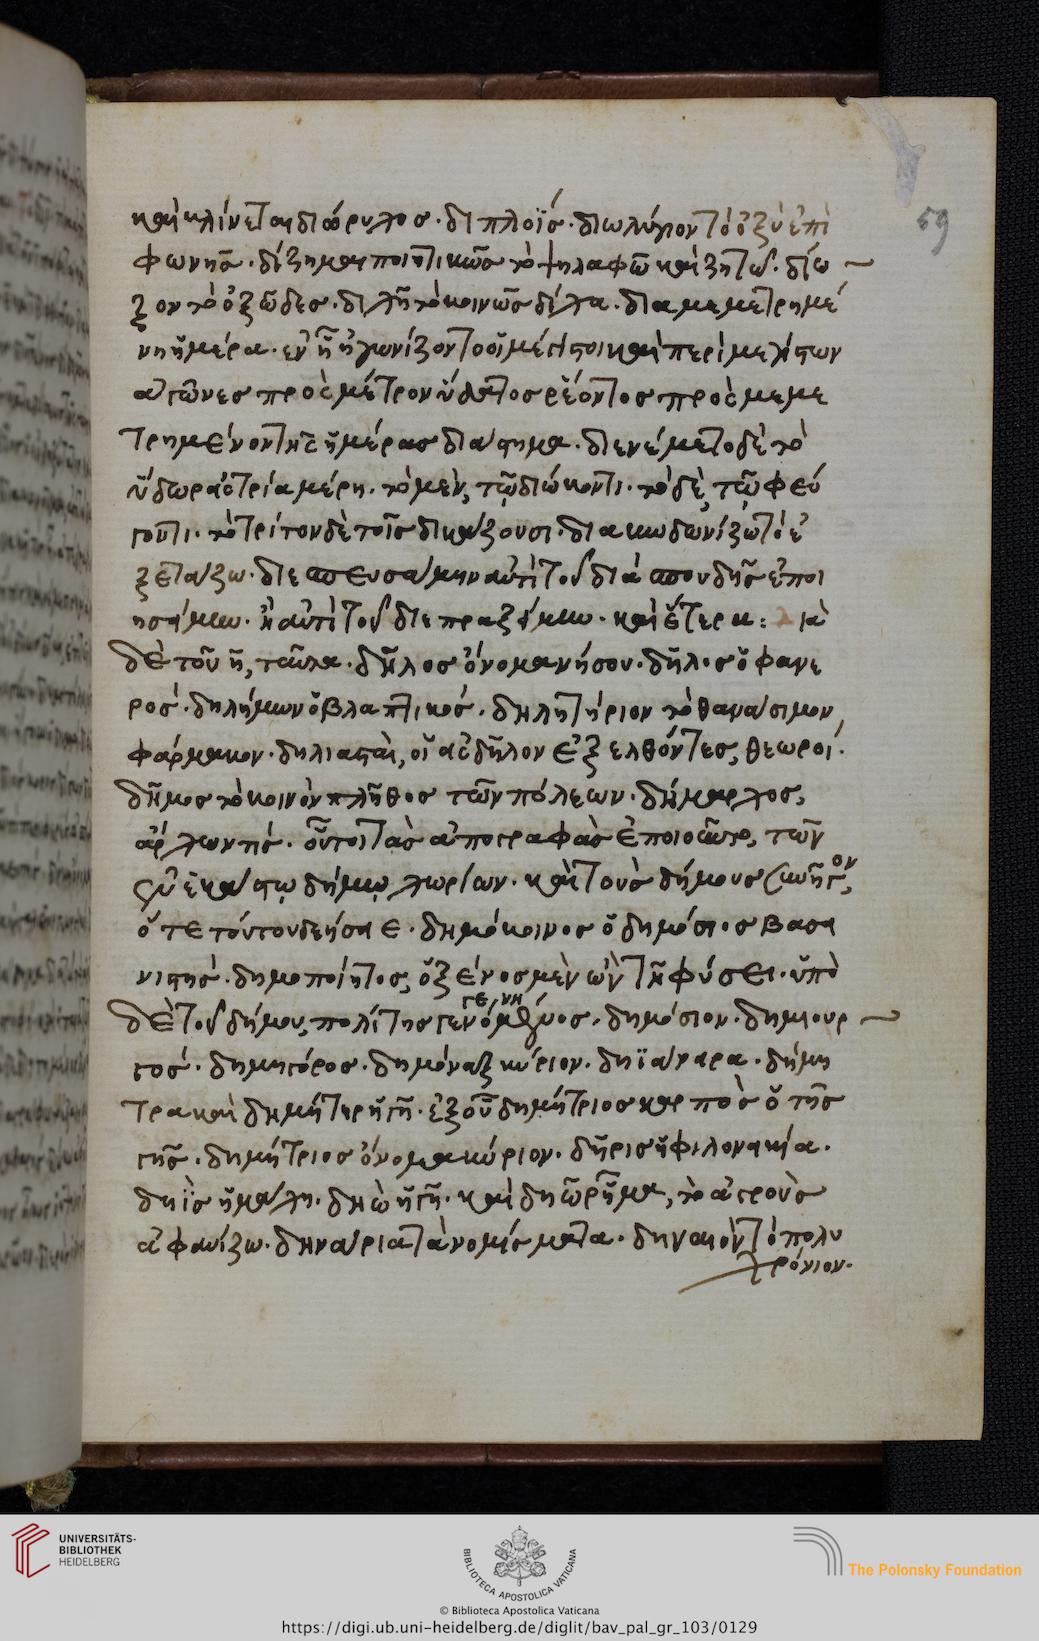 59
καὶ κλίνεται διώρυχος· διπλοΐς· διωλύγιον τὸ ὀξὺ ἐπὶ
φωνῆς· δίζημαι ποιητικῶς τὸ ψηλαφῶ καὶ ζητῶ· δίω
ξον τὸ ὀξῶδες· διχῆ τὸ κοινῶς δίχα· διαμεμετρημέ
νη ἡμέρα· ἐν ᾗ ἠγωνίζοντο οἱ μέγιστοι καὶ περὶ μεγίστων
ἀγῶνες πρὸς μέτρον ὕδατος ῥέοντος πρὸς μεμε
τρημένον τῆς ἡμέρας διάστημα· διενέμετο δὲ τὸ
ὕδωρ εἰς τρία μέρη· τὸ μὲν, τῷ διώκοντι· τὸ δὲ, τῷ φεύ
γοντι· τὸ τρίτον δὲ τοῖς δικάζουσι· διακωδωνίζω τὸ ἐ
ξετάζω· διεσπευσάμην ἀντὶ τοῦ διὰ σπουδῆς ἐποι
ησάμην· ἢ ἀντὶ τοῦ διεπραξάμην· καὶ ἕτερα: διὰ
δὲ τοῦ η, ταῦτα· δῆλος ὄνομα νήσου· δῆλος ὁ φανε
ρός· δηλήμων ὁ βλαπτικός· δηλητήριον τὸ θανάσιμον
φάρμακον· δηλιασταὶ, οἱ εἰς δῆλον ἐξελθόντες, θεωροί·
δῆμος τὸ κοινὸν πλῆθος τῶν πόλεων· δήμαρχος,
ἄρχων τίς· οὗτοι τὰς ἀπογραφὰς ἐποιοῦντο, τῶν
ἐν ἑκάστῳ δήμῳ χωρίων· καὶ τοὺς δήμους συνῆγον,
ὅτε τούτου δεήσειε· δημόκοινος ὁ δημόσιος βασα
νιστής· δημοποίητος, ὁ ξένος μὲν ὢν τῇ φύσει· ὑπὸ
δὲ τοῦ δήμου, πολίτης γεγενημένος· δημόσιον· δημιουρ
γός· δημηγόρος· δημόναξ κύριον· δηϊάνειρα· δήμη
τρα καὶ δημήτηρ ἡ γῆ· ἐξ οὗ δημήτριος καρπὸς ὁ τῆς
γῆς· δημήτριος ὄνομα κύριον· δῆρις ἡ φιλονεικία·
δηῒς ἡ μάχη· δηὼ ἡ γῆ· καὶ δηῶ ῥῆμα, τὸ ἀγροὺς
ἀφανίζω· δηνάρια τὰ νομίσματα· δηναιὸν τὸ πολυ
χρόνιον·
UNIVERSITÄTS-
BIBLIOTHEK
HEIDELBERG
BIBLIOTECA APOSTOLICA VATICANA
The Polonsky Foundation
© Biblioteca Apostolica Vaticana
https://digi.ub.uni-heidelberg.de/diglit/bav_pal_gr_103/0129